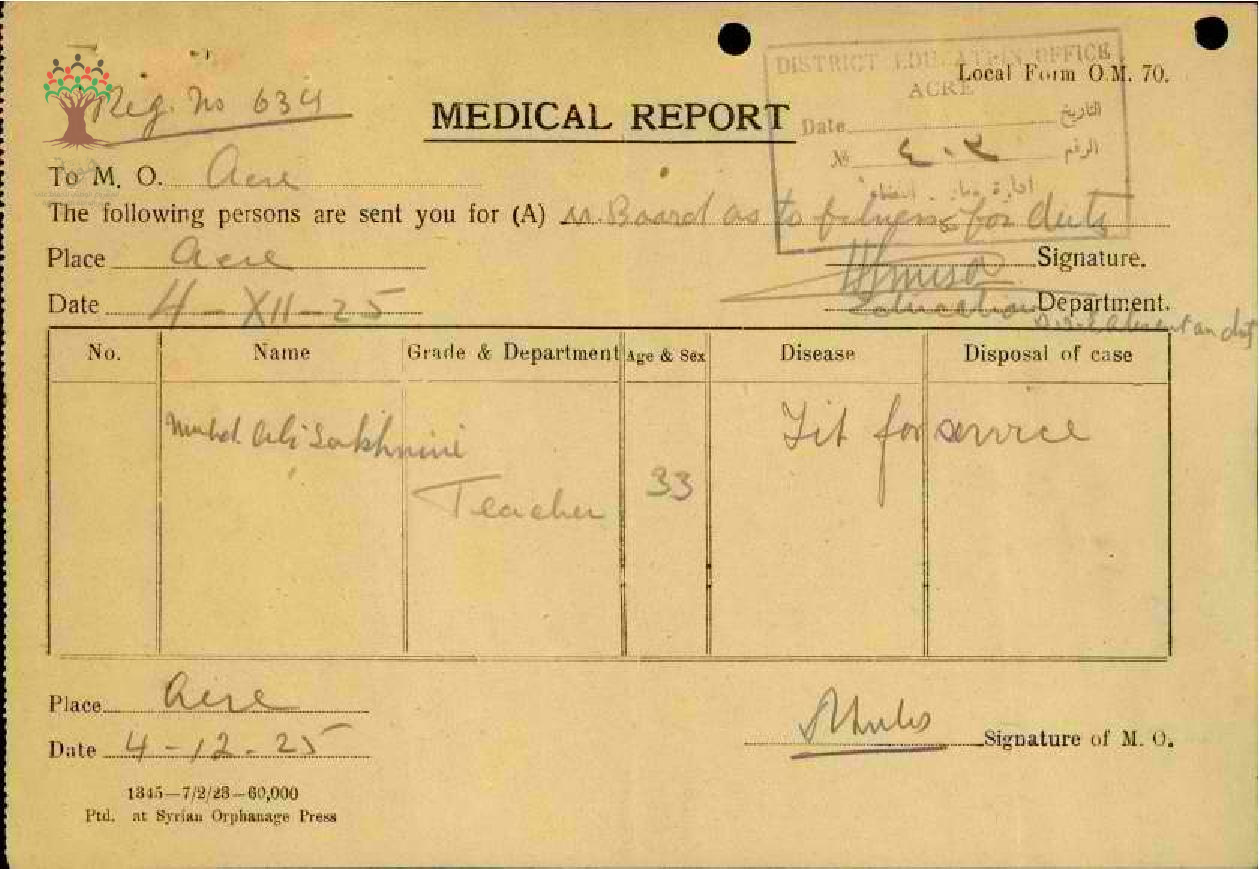 Reg. No 634
DISTRICT EDUCATION OFFICE
ACRE
Local Form O.M. 70.
MEDICAL REPORT
Date التاريخ
№ ٤٠٢ الرقم
To M. O. Acre
The following persons are sent you for (A) M. Board as to fitness for duty
Place Acre Signature.
Date 4-XII-25 Education Department.
absent on duty
No. Name Grade & Department Age & Sex Disease Disposal of case
Muhd Ali Sakhnini Teacher 33 Fit for service
Place Acre
Date 4-12-25 Signature of M. O.
1345—7/2/23—60,000
Ptd. at Syrian Orphanage Press